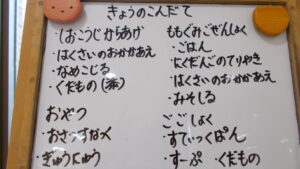 きょうのこんだて
・はこうじからあげ
・はくさいのおかかあえ
・なめこじる
・くだもの
おやつ
・おさつすなっく
・ぎゅうにゅう
ももぐみごぜんしょく
・ごはん
・にくだんごのてりやき
・はくさいのおかかあえ
・みそしる
ごごしょく
・すてぃっくぱん
・すーぷ ・くだもの